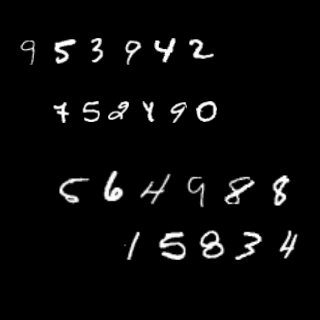 953942
752490
564988
15834